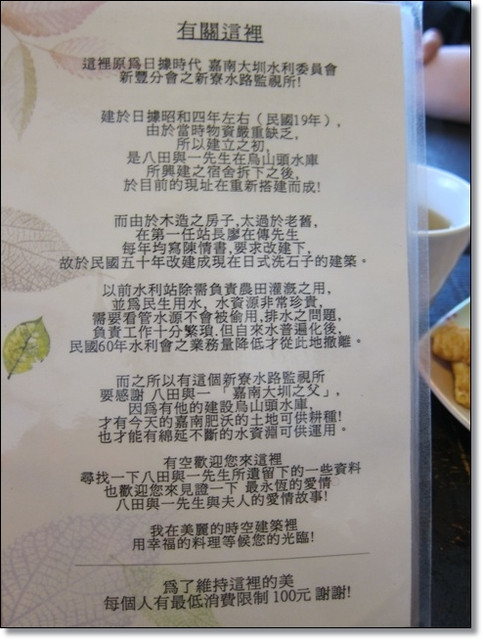 有關這裡
這裡原為日據時代 嘉南大圳水利委員會
新豐分會之新寮水路監視所!
建於日據昭和四年左右（民國19年），
由於當時物資嚴重缺乏，
所以建立之初，
是八田與一先生在烏山頭水庫
所興建之宿舍拆下之後，
於目前的現址在重新搭建而成!
而由於木造之房子,太過於老舊，
在第一任站長廖在傳先生
每年均寫陳情書,要求改建下，
故於民國五十年改建成現在日式洗石子的建築。
以前水利站除需負責農田灌溉之用，
並為民生用水, 水資源非常珍貴，
需要看管水源不會被偷用,排水之問題，
負責工作十分繁瑣.但自來水普遍化後，
民國60年水利會之業務量降低才從此地撤離。
而之所以有這個新寮水路監視所
要感謝 八田與一「嘉南大圳之父」，
因為有他的建設烏山頭水庫，
才有今天的嘉南肥沃的土地可供耕種!
也才能有綿延不斷的水資源可供運用。
有空歡迎您來這裡
尋找一下八田與一先生所遺留下的一些資料
也歡迎您來見證一下 最永恆的愛情
八田與一先生與夫人的愛情故事!
我在美麗的時空建築裡
用幸福的料理等候您的光臨!
為了維持這裡的美
每個人有最低消費限制 100元 謝謝!